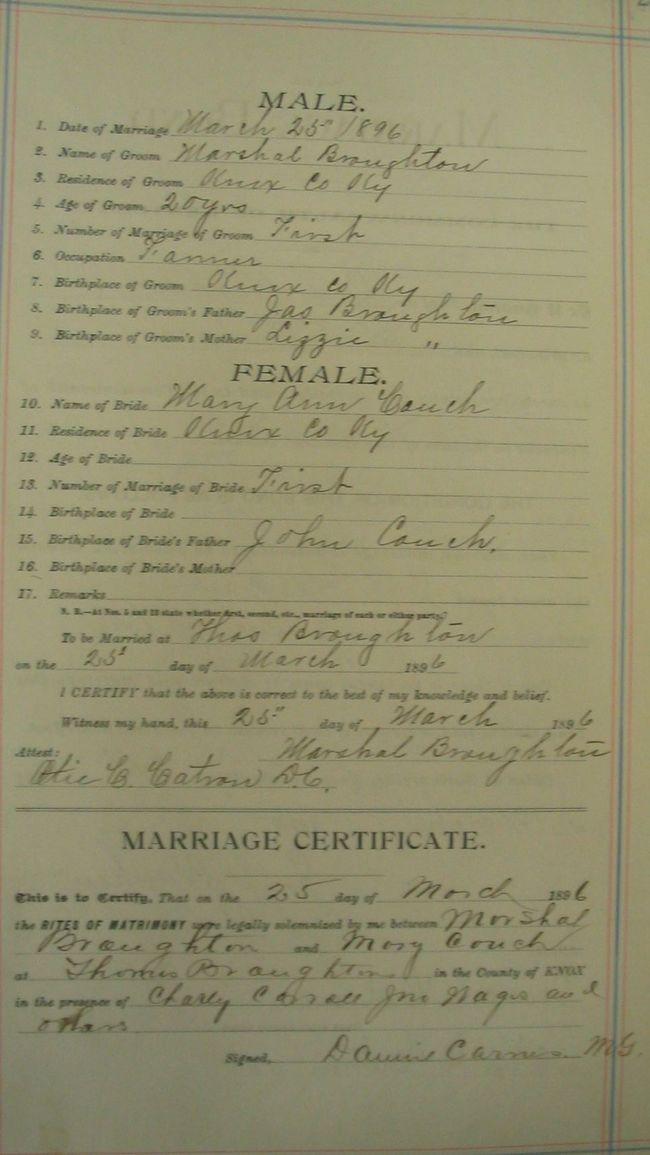 MALE.
1. Date of Marriage March 25" 1896
2. Name of Groom Marshal Broughton
3. Residence of Groom Knox Co Ky
4. Age of Groom 20 yrs
5. Number of Marriage of Groom First
6. Occupation Farmer
7. Birthplace of Groom Knox Co Ky
8. Birthplace of Groom's Father Jas Broughton
9. Birthplace of Groom's Mother Lizzie "
FEMALE.
10. Name of Bride Mary Ann Couch
11. Residence of Bride Knox Co Ky
12. Age of Bride
13. Number of Marriage of Bride First
14. Birthplace of Bride
15. Birthplace of Bride's Father John Couch.
16. Birthplace of Bride's Mother
17. Remarks
N. B.—At Nos. 5 and 13 state whether first, second, etc., marriage of each or either party.
To be Married at Thos Broughton
on the 25" day of March 1896
I CERTIFY that the above is correct to the best of my knowledge and belief.
Witness my hand, this 25" day of March 1896
Attest: Marshal Broughton
Catron D.C.
MARRIAGE CERTIFICATE.
This is to Certify, That on the 25 day of March 1896
the RITES OF MATRIMONY were legally solemnized by me between Marshal
Broughton and Mary Couch
at Thomas Broughtons in the County of KNOX
in the presence of Charly and
others
Signed, M.G.